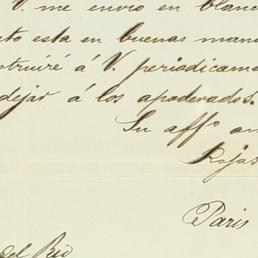 V. me envio en blanc
to esta en buenas mano
truiré á V. periodicame
dejar á los apoderados.
Su affo. am
Rojas
Paris
del Rio